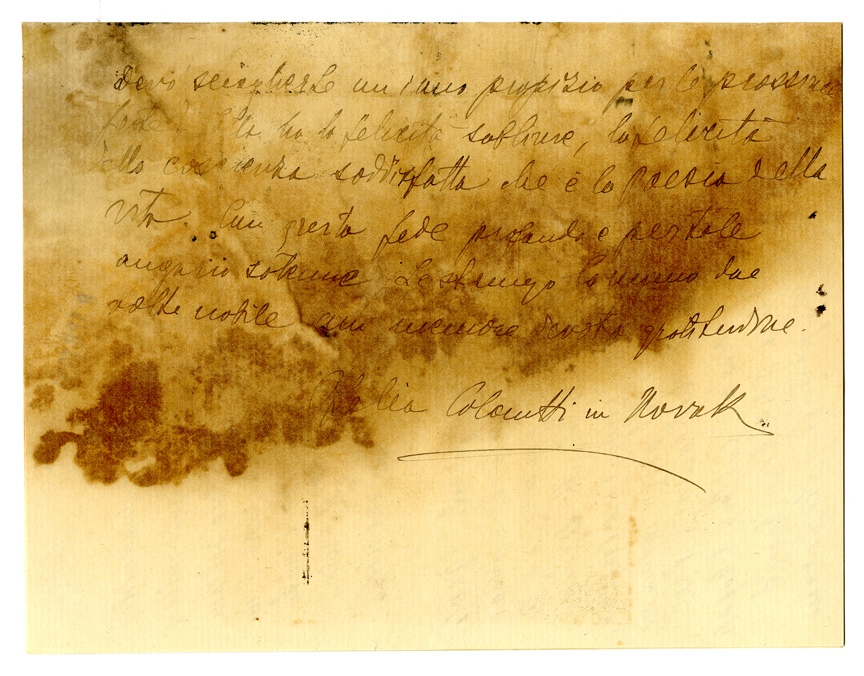 Devo scioglierLe un inno propizio per le prossime
feste? Ella ha la felicità sublime, la felicità
della coscienza soddisfatta che è la poesia della
vita. Con questa fede profonda e pertale
augurio solenne Le stringo la mano due
volte nobile con memore devota gratitudine.
Colautti in Novak